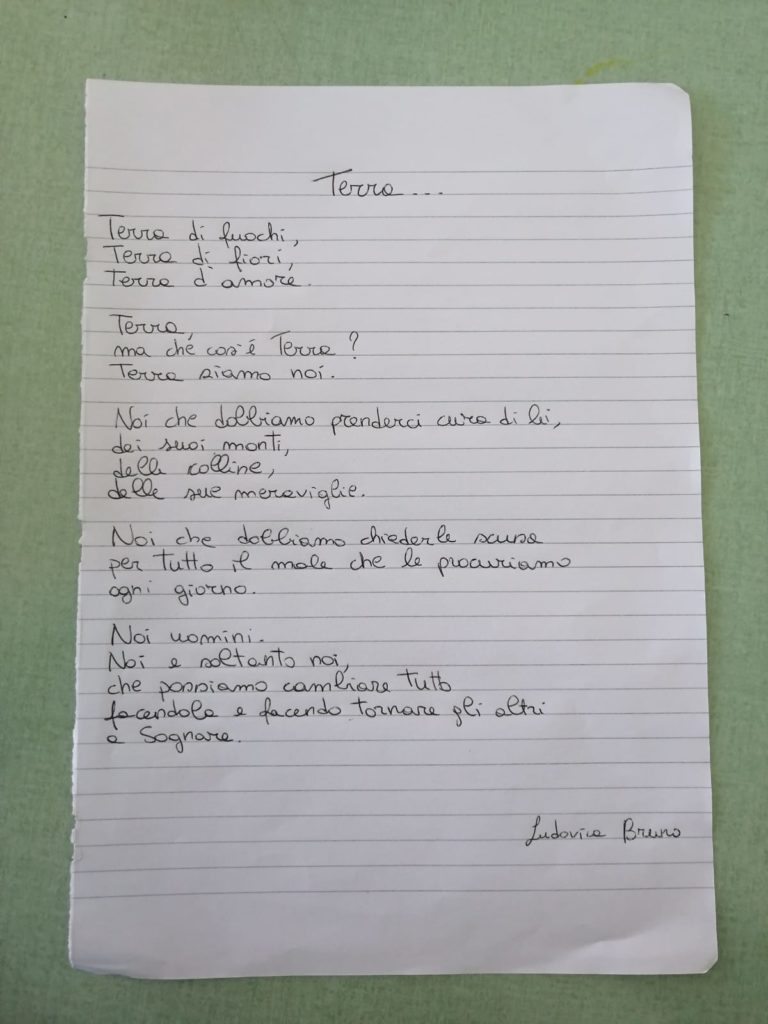 Terra...
Terra di fuochi,
Terra di fiori,
Terra d'amore.
Terra,
ma ché cos'é Terra?
Terra siamo noi.
Noi che dobbiamo prenderci cura di lei,
dei suoi monti,
delle colline,
delle sue meraviglie.
Noi che dobbiamo chiederle scusa
per tutto il male che le procuriamo
ogni giorno.
Noi uomini.
Noi e soltanto noi,
che possiamo cambiare tutto
facendola e facendo tornare gli altri
a Sognare.
Ludovica Bruno